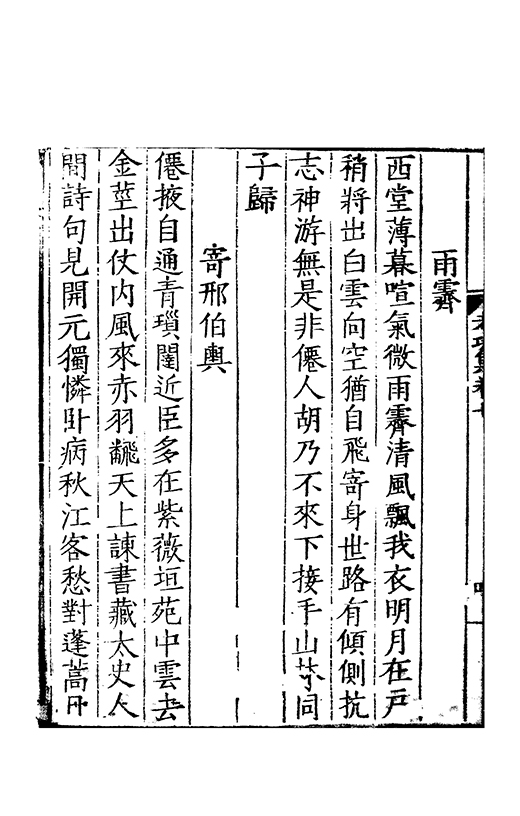 雨霽
西堂薄暮喧氣微雨霽清風飄我衣明月在戸
稍將出白雲向空猶自飛寄身世路有傾側抗
志神游無是非僊人胡乃不來下接手山 同
子歸
寄邢伯輿
僊掖自通青瑣闥近臣多在紫薇垣苑中雲去
金莖出仗内風來赤羽翻天上諫書藏太史人
間詩句見開元獨憐卧病秋江客愁對蓬蒿
卷十